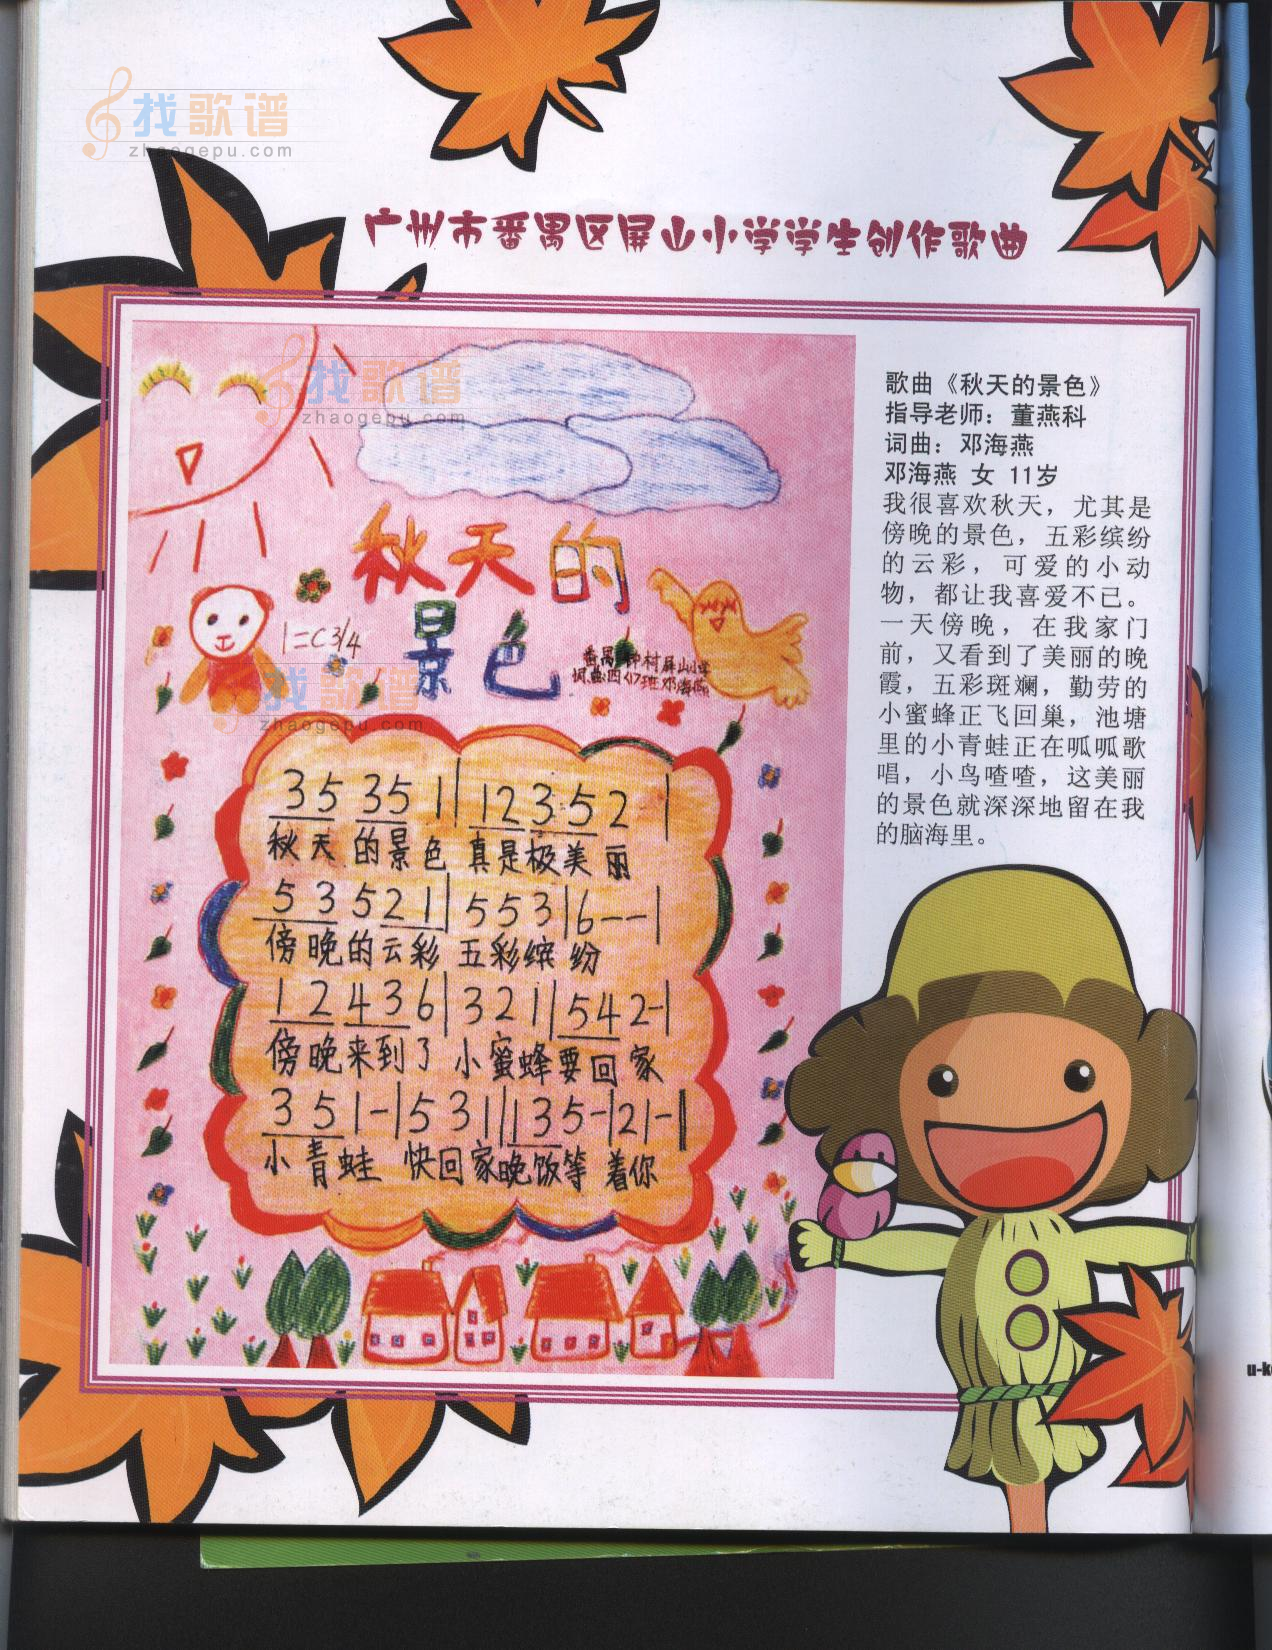 找歌谱
zhaogepu.com
广州市番禺区屏山小学学生创作歌曲
找歌谱
zhaogepu.com
秋天的
景色
1=C 3/4
番禺 钟村屏山小学
词曲:四(1)班邓海燕
找歌谱
zhaogepu.com
3 5 3 5 1 | 1 2 3 5 2 |
秋天的景色 真是极美丽
5 3 5 2 1 | 5 5 3 | 6 - - |
傍晚的云彩 五彩缤纷
1 2 4 3 6 | 3 2 1 | 5 4 2 - |
傍晚来到了 小蜜蜂要回家
3 5 1 - | 5 3 1 | 1 3 5 - | 2 1 - ‖
小青蛙 快回家晚饭等着你
歌曲《秋天的景色》
指导老师：董燕科
词曲：邓海燕
邓海燕 女 11岁
我很喜欢秋天，尤其是
傍晚的景色，五彩缤纷
的云彩，可爱的小动
物，都让我喜爱不已。
一天傍晚，在我家门
前，又看到了美丽的晚
霞，五彩斑斓，勤劳的
小蜜蜂正飞回巢，池塘
里的小青蛙正在呱呱歌
唱，小鸟喳喳，这美丽
的景色就深深地留在我
的脑海里。